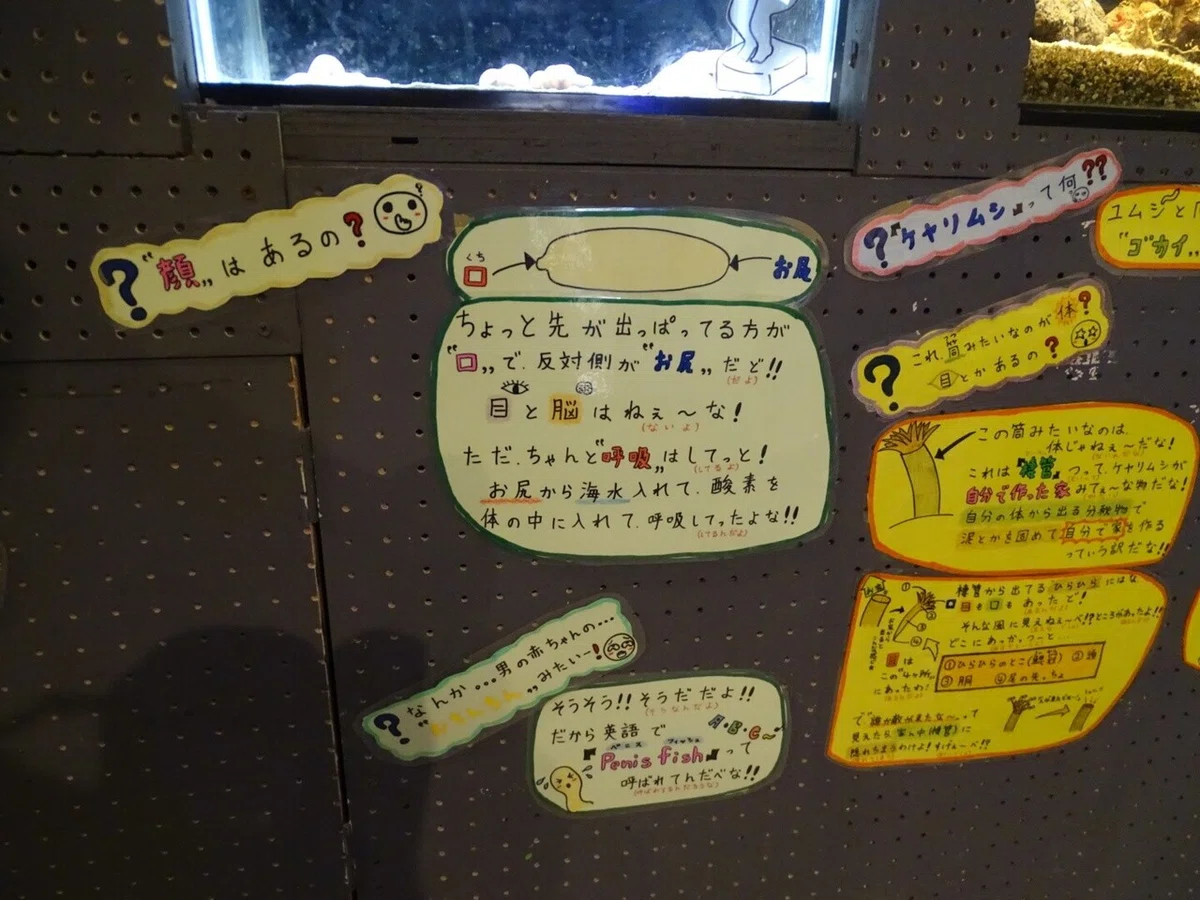 ?"顔"はあるの?
くち
口
お尻
ちょっと先が出っぱってる方が
"口"で、反対側が"お尻"だど!!
(だよ)
目と脳はねぇ〜な!
(ないよ)
ただ、ちゃんと"呼吸"はしてっと!
(してるよ)
お尻から海水入れて、酸素を
体の中に入れて、呼吸してったよな!!
(してるんだよ)
?なんか...男の赤ちゃんの...
みたいー!
そうそう!!そうだだよ!!
(そうなんだよ)
だから英語で A・B・C〜
ペニス フィッシュ
『Penis fish』って
呼ばれてんだべな!!
?『ケヤリムシ』って何??
?これ、筒みたいなのが体?
目とかあるの?
この筒みたいなのは、
体じゃねぇ〜だな!
これは"棲管"つって、ケヤリムシが
自分で作った家みてぇ〜な物だな!
自分の体から出る分泌物で
泥とかを固めて自分で家を作る
っていう訳だな!!
棲管から出てるひらひらにはな
目も口もあったど!
そんな風に見えねぇ〜べ!?ところがあったよ!!
どこにあっかっつーと...
目は
この"4ヶ所"
にあったわ!
①ひらひらのとこ(鰓冠) ②頭
③胴 ④尾の先っちょ
ユムシ〜と
"ゴカイ"